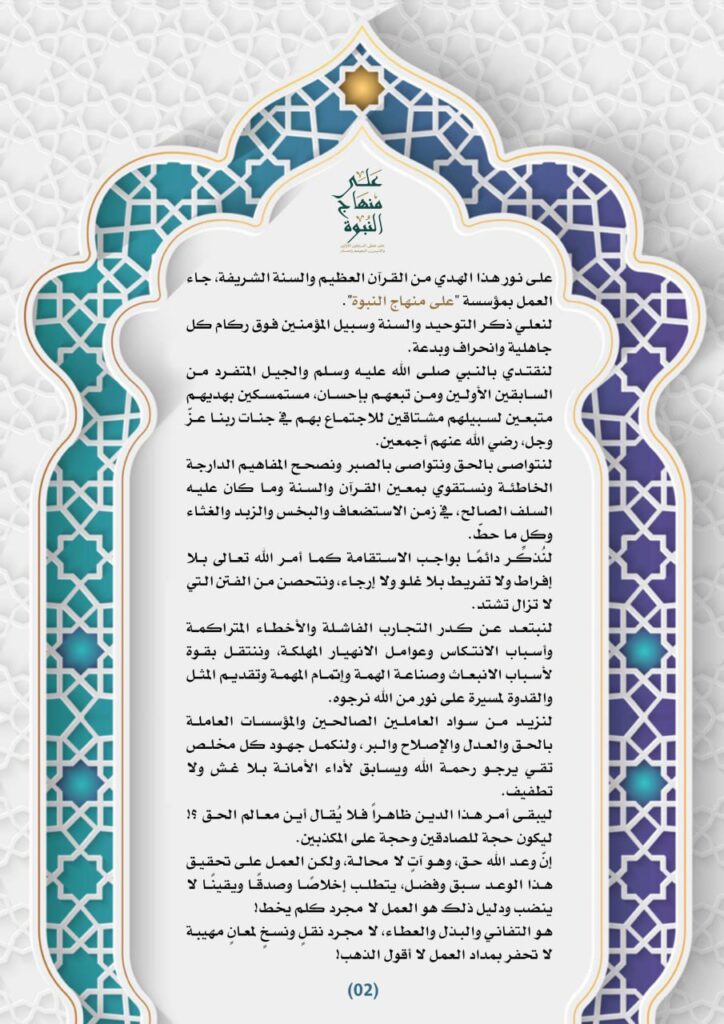 على
منهاج
النبوة
على نور هذا الهدي من القرآن العظيم والسنة الشريفة، جاء
العمل بمؤسسة "على منهاج النبوة".
لنعلي ذكر التوحيد والسنة وسبيل المؤمنين فوق ركام كل
جاهلية وانحراف وبدعة.
لنقتدي بالنبي صلى الله عليه وسلم والجيل المتفرد من
السابقين الأولين ومن تبعهم بإحسان، مستمسكين بهديهم
متبعين لسبيلهم مشتاقين للاجتماع بهم في جنات ربنا عزّ
وجل، رضي الله عنهم أجمعين.
لنتواصى بالحق ونتواصى بالصبر ونصحح المفاهيم الدارجة
الخاطئة ونستقوي بمعين القرآن والسنة وما كان عليه
السلف الصالح، في زمن الاستضعاف والبخس والزبد والغثاء
وكل ما حطّ.
لنُذكِّر دائمًا بواجب الاستقامة كما أمر الله تعالى بلا
إفراط ولا تفريط بلا غلو ولا إرجاء، ونتحصن من الفتن التي
لا تزال تشتد.
لنبتعد عن كدر التجارب الفاشلة والأخطاء المتراكمة
وأسباب الانتكاس وعوامل الانهيار المهلكة، وننتقل بقوة
لأسباب الانبعاث وصناعة الهمة وإتمام المهمة وتقديم المثل
والقدوة لمسيرة على نور من الله نرجوه.
لنزيد من سواد العاملين الصالحين والمؤسسات العاملة
بالحق والعدل والإصلاح والبر، ولنكمل جهود كل مخلص
تقي يرجو رحمة الله ويسابق لأداء الأمانة بلا غش ولا
تطفيف.
ليبقى أمر هذا الدين ظاهراً فلا يُقال أين معالم الحق ؟!
ليكون حجة للصادقين وحجة على المكذبين.
إنّ وعد الله حق، وهو آتٍ لا محالة، ولكن العمل على تحقيق
هذا الوعد سبق وفضل، يتطلب إخلاصًا وصدقًا ويقينًا لا
ينضب ودليل ذلك هو العمل لا مجرد كلم يخط!
هو التفاني والبذل والعطاء، لا مجرد نقلٍ ونسخٍ لمعانٍ مهيبة
لا تحفر بمداد العمل لا أقول الذهب!
(02)